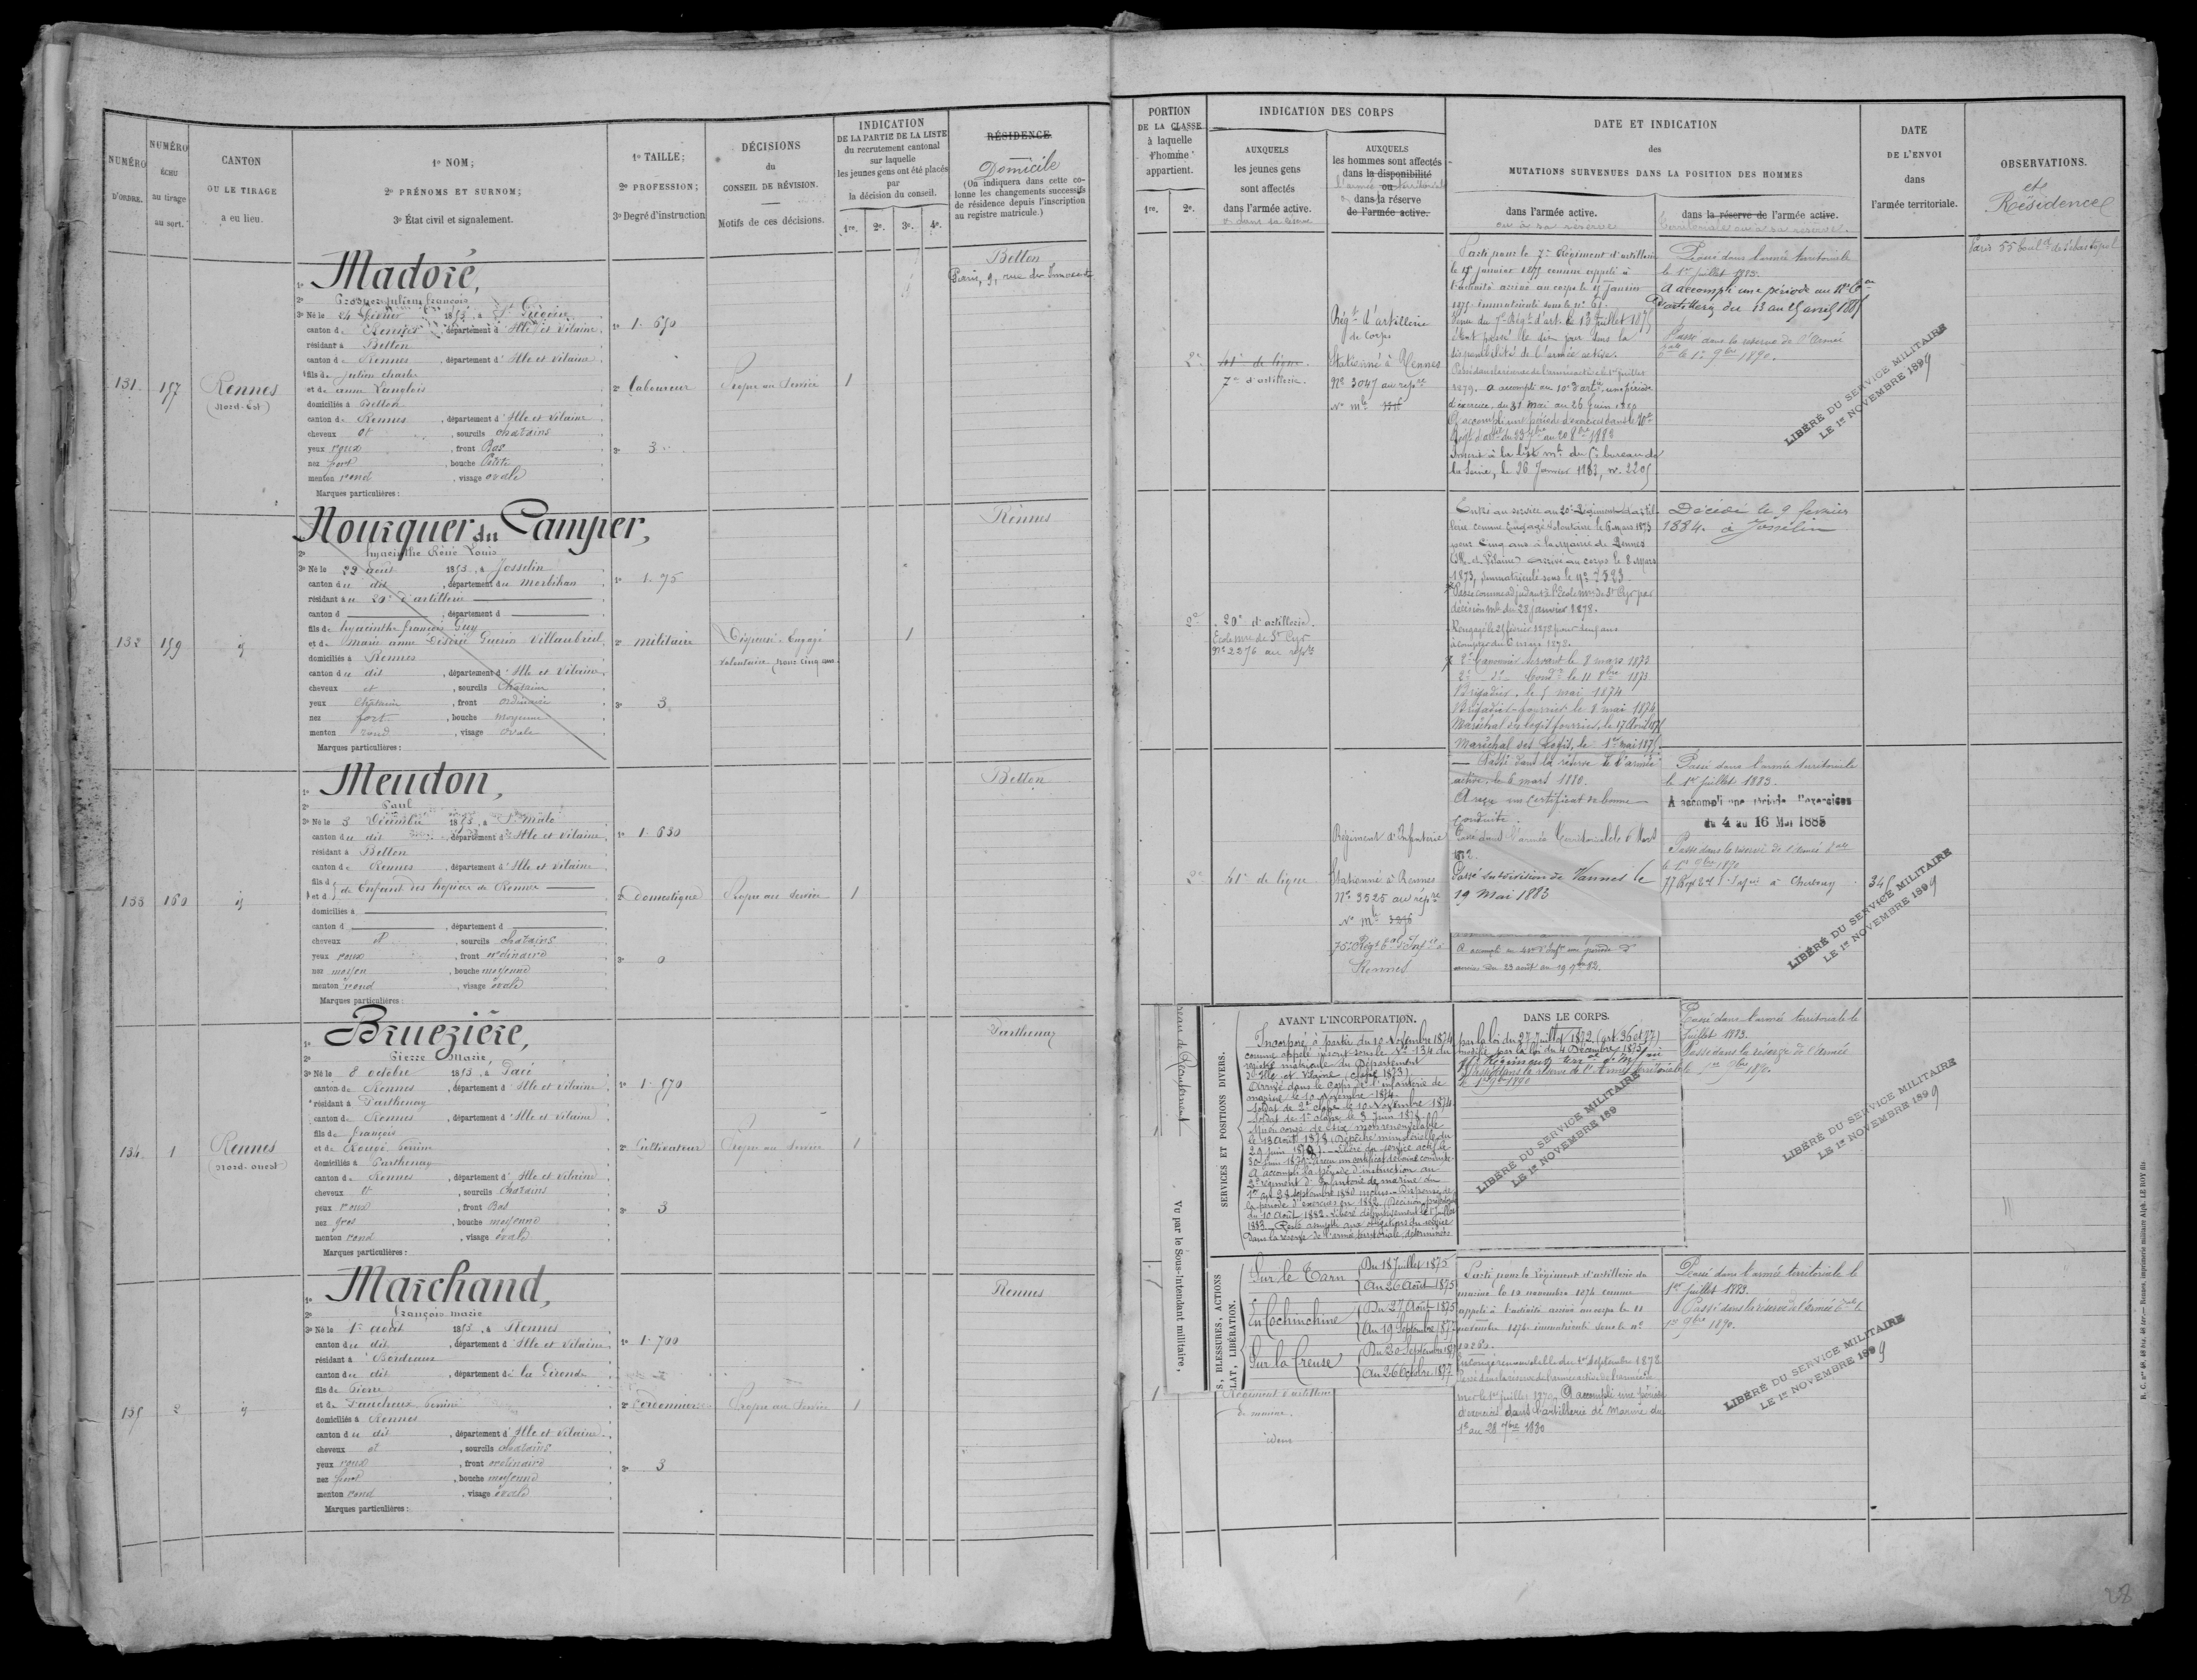 NUMÉRO
D'ORDRE.
NUMÉRO
ÉCHU
au tirage
au sort.
CANTON
OU LE TIRAGE
a eu lieu.
1º NOM;
2º PRÉNOMS ET SURNOM;
3º État civil et signalement.
1º TAILLE;
2º PROFESSION;
3º Degré d'instruction
DÉCISIONS
du
CONSEIL DE RÉVISION.
Motifs de ces décisions.
INDICATION
DE LA PARTIE DE LA LISTE
du recrutement cantonal
sur laquelle
les jeunes gens ont été placés
par
la décision du conseil.
1re. 2e. 3e. 4e.
RÉSIDENCE
Domicile
(On indiquera dans cette co-
lonne les changements successifs
de résidence depuis l'inscription
au registre matricule.)
131
157
Rennes
(Nord-Est)
1º Madoré,
2º Prosper Julien françois
3º Né le 24 février 1853, à
canton de Rennes, département d'Ille et Vilaine
résidant à Betton
canton de Rennes, département d'Ille et Vilaine
fils de Julien charles
et de anne Langlois
domiciliés à Betton
canton de Rennes, département d'Ille et Vilaine
cheveux et, sourcils chatains
yeux roux, front Bas
nez fort, bouche Petite
menton rond, visage ovale
Marques particulières :
1º 1.650
2º Laboureur
3º 3
Propre au Service
1
Betton
Paris, 9, rue des Innocents
132
159
id
Nourquer du Camper,
2º hyacinthe Réné Louis
3º Né le 29 août 1853, à Josselin
canton du dit, département du Morbihan
résidant au 20e d'artillerie
canton d, département d
fils de hyacinthe françois Guy
et de Marie anne Désirée Guerin Villaubreil
domiciliés à Rennes
canton du dit, département d'Ille et Vilaine
cheveux et, sourcils Chatains
yeux Chatains, front ordinaire
nez fort, bouche moyenne
menton rond, visage ovale
Marques particulières :
1º 1.75
2º militaire
3º 3
Dispensé. Engagé
volontaire pour cinq ans
1
Rennes
133
160
id
1º Meudon,
2º Paul
3º Né le 3 Décembre 1853, à St Malo
canton du dit, département d'Ille et Vilaine
résidant à Betton
canton de Rennes, département d'Ille et Vilaine
fils d
et d
de Enfant des hospices de Rennes
domiciliés à
canton d, département d
cheveux et, sourcils chatains
yeux roux, front ordinaire
nez moyen, bouche moyenne
menton rond, visage ovale
Marques particulières :
1º 1.630
2º domestique
3º 0
Propre au service
1
Betton
134
1
Rennes
(Nord-ouest)
1º Bruezière,
2º Pierre Marie
3º Né le 8 octobre 1853, à Pacé
canton de Rennes, département d'Ille et Vilaine
résidant à Parthenay
canton de Rennes, département d'Ille et Vilaine
fils de françois
et de Perrine
domiciliés à Parthenay
canton de Rennes, département d'Ille et Vilaine
cheveux et, sourcils chatains
yeux roux, front Bas
nez gros, bouche moyenne
menton rond, visage ovale
Marques particulières :
1º 1.670
2º Cultivateur
3º 3
Propre au service
1
Parthenay
135
2
id
1º Marchand,
2º françois marie
3º Né le 1er août 1853, à Rennes
canton du dit, département d'Ille et Vilaine
résidant à Bordeaux
canton du dit, département de la Gironde
fils de Pierre
et de Faucheux Perrine
domiciliés à Rennes
canton du dit, département d'Ille et Vilaine
cheveux et, sourcils chatains
yeux roux, front ordinaire
nez fort, bouche moyenne
menton rond, visage ovale
Marques particulières :
1º 1.700
2º Cordonnier
3º 3
Propre au service
1
Rennes
PORTION
DE LA CLASSE
à laquelle
l'homme
appartient.
1re. 2e.
INDICATION DES CORPS
AUXQUELS
les jeunes gens
sont affectés
dans l'armée active.
ou dans sa réserve
AUXQUELS
les hommes sont affectés
dans la disponibilité
ou
l'armée territoriale
dans la réserve
de l'armée active.
DATE ET INDICATION
des
MUTATIONS SURVENUES DANS LA POSITION DES HOMMES
dans l'armée active.
ou à sa réserve
dans la réserve de l'armée active.
territoriale ou à sa réserve.
DATE
DE L'ENVOI
dans
l'armée territoriale.
OBSERVATIONS.
et
Résidences
2e
41e de ligne
7e d'artillerie.
Régt d'artillerie
de corps
Stationné à Rennes
Nº 3047 au répre
Nº mle
Parti pour le 7e Régiment d'artillerie
le 15 janvier 1875 comme appelé à
l'activité arrivé au corps le 15 Janvier
1875. Immatriculé sous le nº 61.
Venu du 7e Régt d'art. le 13 juillet 1875
étant passé le dit jour dans la
disponibilité de l'armée active.
Passé dans la réserve de l'armée active le 1er juillet
1879. a accompli au 10e d'artie une période
d'exercice, du 31 mai au 26 Juin 1880
A accompli une période d'exercice dans le 10e
Inscrit à la liste mle du bureau de
la Seine, le 26 Janvier 1883, nº 2205
Passé dans l'armée territoriale
le 1er juillet 1883.
A accompli une période au
d'artillerie du 13 au 25 avril 1885
Passé dans la réserve de l'Armée
le 1er 9bre 1890.
LIBÉRÉ DU SERVICE MILITAIRE
LE 1er NOVEMBRE 1899
Paris 55 boulrd de Sébastopol
2e
20e d'artillerie.
Ecole mre de St Cyr
Nº 2276 au répre
Entré au service au 20e Régiment d'artil-
lerie comme Engagé volontaire le 6 mars 1873
pour cinq ans à la Mairie de Rennes
(Ille et Vilaine) arrivé au corps le 8 Mars
1873, immatriculé sous le nº 2523.
Passé comme adjudant à l'Ecole mre de St Cyr par
décision mle du 28 janvier 1878.
Rengagé le 25 février 1878 pour cinq ans
à compter du 6 mars 1878.
2e Canonnier servant le 8 mars 1873
2e dº Condr le 11 8bre 1873
Brigadier, le 5 mai 1874
Brigadier-fourrier le 8 mai 1874
Maréchal des logis fourrier, le 17 Avril 1875
Maréchal des Logis, le 1er mai 1875
Décédé le 9 février
1884. à Josselin
2e
41e de ligne
Régiment d'Infanterie
Stationné à Rennes
Nº 3525 au répre
Nº mle
75e Régt d'Infie à
Rennes
Passé dans la réserve de l'armée
active, le 6 mars 1880.
A reçu un certificat de bonne
conduite.
Passé dans l'armée Territoriale le 6 Mars
Passé subdivision de Vannes le
19 Mai 1883
A accompli au 41e d'Infie une période d'
exercices du 23 août au 19 7bre 82.
Passé dans l'armée territoriale
le 1er juillet 1883.
A accompli une période d'exercices
du 4 au 16 Mai 1885
Passé dans la réserve de l'armée
le 1er 9bre 1890
345
LIBÉRÉ DU SERVICE MILITAIRE
LE 1er NOVEMBRE 1899
Bureau de Recrutement
Vu par le Sous-Intendant militaire,
SERVICES ET POSITIONS DIVERS.
AVANT L'INCORPORATION.
Incorporé à partir du 10 Novembre 1874
comme appelé inscrit sous le Nº 134 du
registre matricule du Département
d'Ille et Vilaine (classe 1873)
Arrivé dans le Corps de l'infanterie de
marine le 10 Novembre 1874.
Soldat de 2e classe le 10 Novembre 1874
Soldat de 1re classe le 3 Juin 1878
Mis en congé de six mois renouvelable
le 13 août 1878 (Dépêche ministérielle du
29 Juin 1878). Libéré du service actif le
30 Juin 1879. A reçu un certificat de bonne conduite.
A accompli la période d'instruction au
2e régiment d'Infanterie de marine du
1er au 28 septembre 1880 inclus. Dispensé de
la période d'exercices en 1882 (Décision présidentielle
du 10 Août 1882. Libéré définitivement le 1er Juillet
1883. Reste assujetti aux obligations du service
dans la réserve de l'armée territoriale, déterminées
DANS LE CORPS.
par la loi du 27 Juillet 1872 (art. 36 et 77)
modifiée par la loi du 4 Décembre 1875
Passé dans la réserve de l'Armée territoriale
le 1er 9bre 1890
LIBÉRÉ DU SERVICE MILITAIRE
LE 1er NOVEMBRE 189
Passé dans l'armée territoriale le
Juillet 1883.
Passé dans la réserve de l'Armée
1er 9bre 1890.
LIBÉRÉ DU SERVICE MILITAIRE
LE 1er NOVEMBRE 1899
S, BLESSURES, ACTIONS
LAT, LIBÉRATION.
Sur le Tarn
Du 18 Juillet 1875
Au 26 Août 1875
En Cochinchine
Du 27 Août 1875
Au 19 Septembre 1877
Sur la Creuse
Du 20 Septembre 1877
Au 26 Octobre 1877
1
Régiment d'artillerie
de marine.
idem
Parti pour le Régiment d'artillerie de
marine le 10 novembre 1874 comme
appelé à l'activité arrivé au corps le 11
novembre 1874 immatriculé sous le nº
En congé renouvelable du 1er Septembre 1878
A accompli une période
d'exercices dans l'artillerie de marine du
1er au 28 7bre 1880
Passé dans l'armée territoriale le
1er Juillet 1883.
Passé dans la réserve de l'Armée
1er 9bre 1890.
LIBÉRÉ DU SERVICE MILITAIRE
LE 1er NOVEMBRE 1899
28